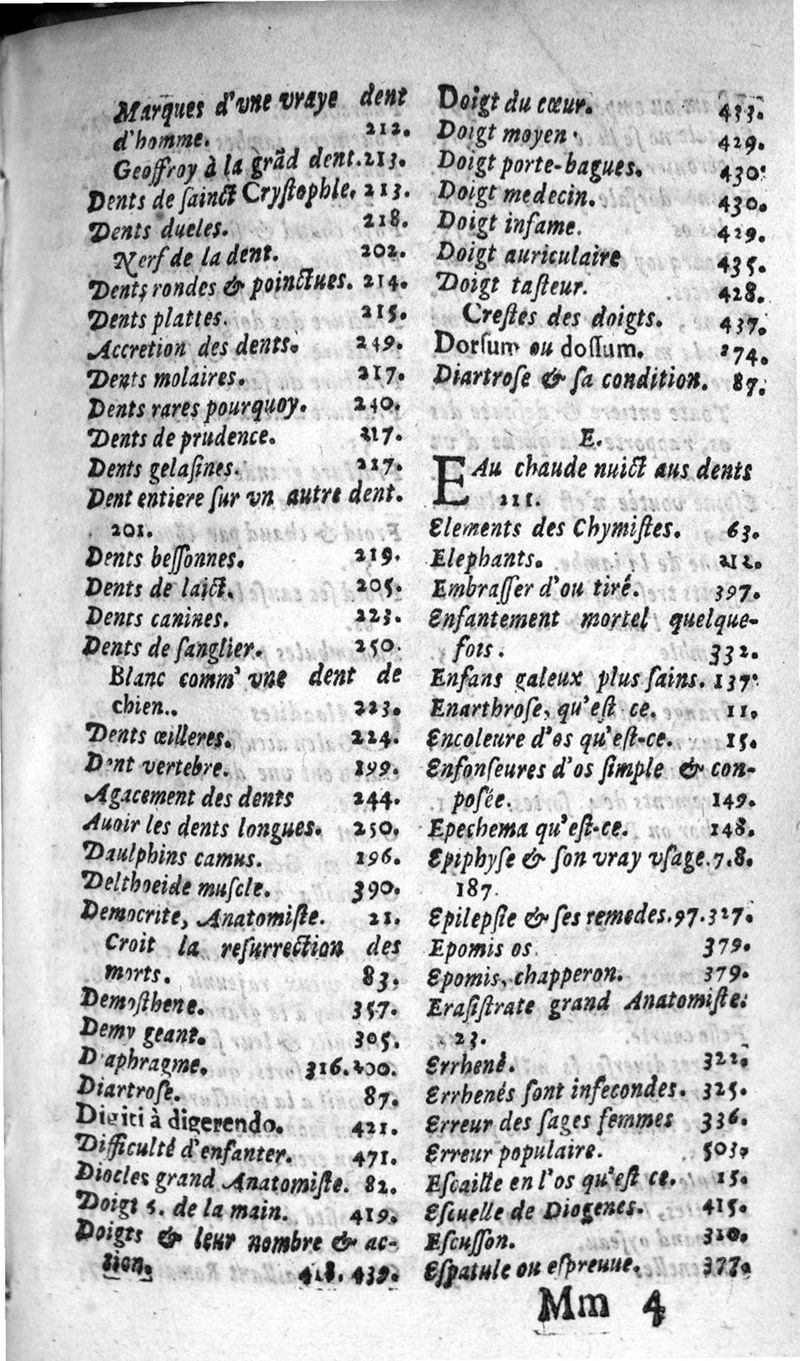 Marques d'vne vraye dent
d'homme. 212.
Geoffroy à la grãd dent. 213.
Dents de ſainct Cryſtophle. 213.
Dents dueles. 218.
Nerf de la dent. 202.
Dents rondes & poinctues. 214.
Dents plattes. 215.
Accretion des dents. 249.
Dents molaires. 217.
Dents rares pourquoy. 240.
Dents de prudence. 217.
Dents gelaſines. 227.
Dent entiere ſur vn autre dent.
201.
Dents beſſonnes. 219.
Dents de laict. 205.
Dents canines. 223.
Dents de ſanglier. 250.
Blanc comm' vne dent de
chien.. 223.
Dents œilleres. 224.
Dent vertebre. 199.
Agacement des dents 244.
Auoir les dents longues. 250.
Daulphins camus. 196.
Delthoeide muſcle. 390.
Democrite, Anatomiſte. 21.
Croit la reſurrection des
morts. 83.
Demoſthene. 357.
Demy geant. 305.
D'aphragme. 316.200.
Diartroſe. 87.
Digiti à digerendo. 421.
Difficulté d'enfanter. 471.
Diocles grand Anatomiſte. 82.
Doigt 5. de la main. 419.
Doigts & leur nombre & ac-
tion. 418. 439.
Doigt du cœur. 433.
Doigt moyen. 429.
Doigt porte-bagues. 430.
Doigt medecin. 430.
Doigt infame. 429.
Doigt auriculaire 435.
Doigt taſteur. 428.
Creſtes des doigts. 437.
Dorſum ou doſſum. 274.
Diartroſe & ſa condition. 87.
E.
EAu chaude nuict aus dents
211.
Elements des Chymiſtes. 63.
Elephants. 212.
Embraſſer d'ou tiré. 397.
Enfantement mortel quelque-
fois. 332.
Enfans galeux plus ſains. 137.
Enarthroſe, qu'eſt ce. 11.
Encoleure d'os qu'eſt-ce. 15.
Enfonſeures d'os ſimple & con-
poſée. 149.
Epechema qu'eſt-ce. 148.
Epiphyſe & ſon vray vſage. 7.8.
187.
Epilepſie & ſes remedes. 97.327.
Epomis os. 379.
Epomis, chapperon. 379.
Eraſiſtrate grand Anatomiſte.
23.
Errhené. 322.
Errhenés ſont infecondes. 325.
Erreur des ſages femmes 336.
Erreur populaire. 503.
Eſcaille en l'os qu'eſt ce. 15.
Eſcuelle de Diogenes. 415.
Eſcuſſon. 310.
Eſpatule ou eſpreuue. 377.
Mm 4